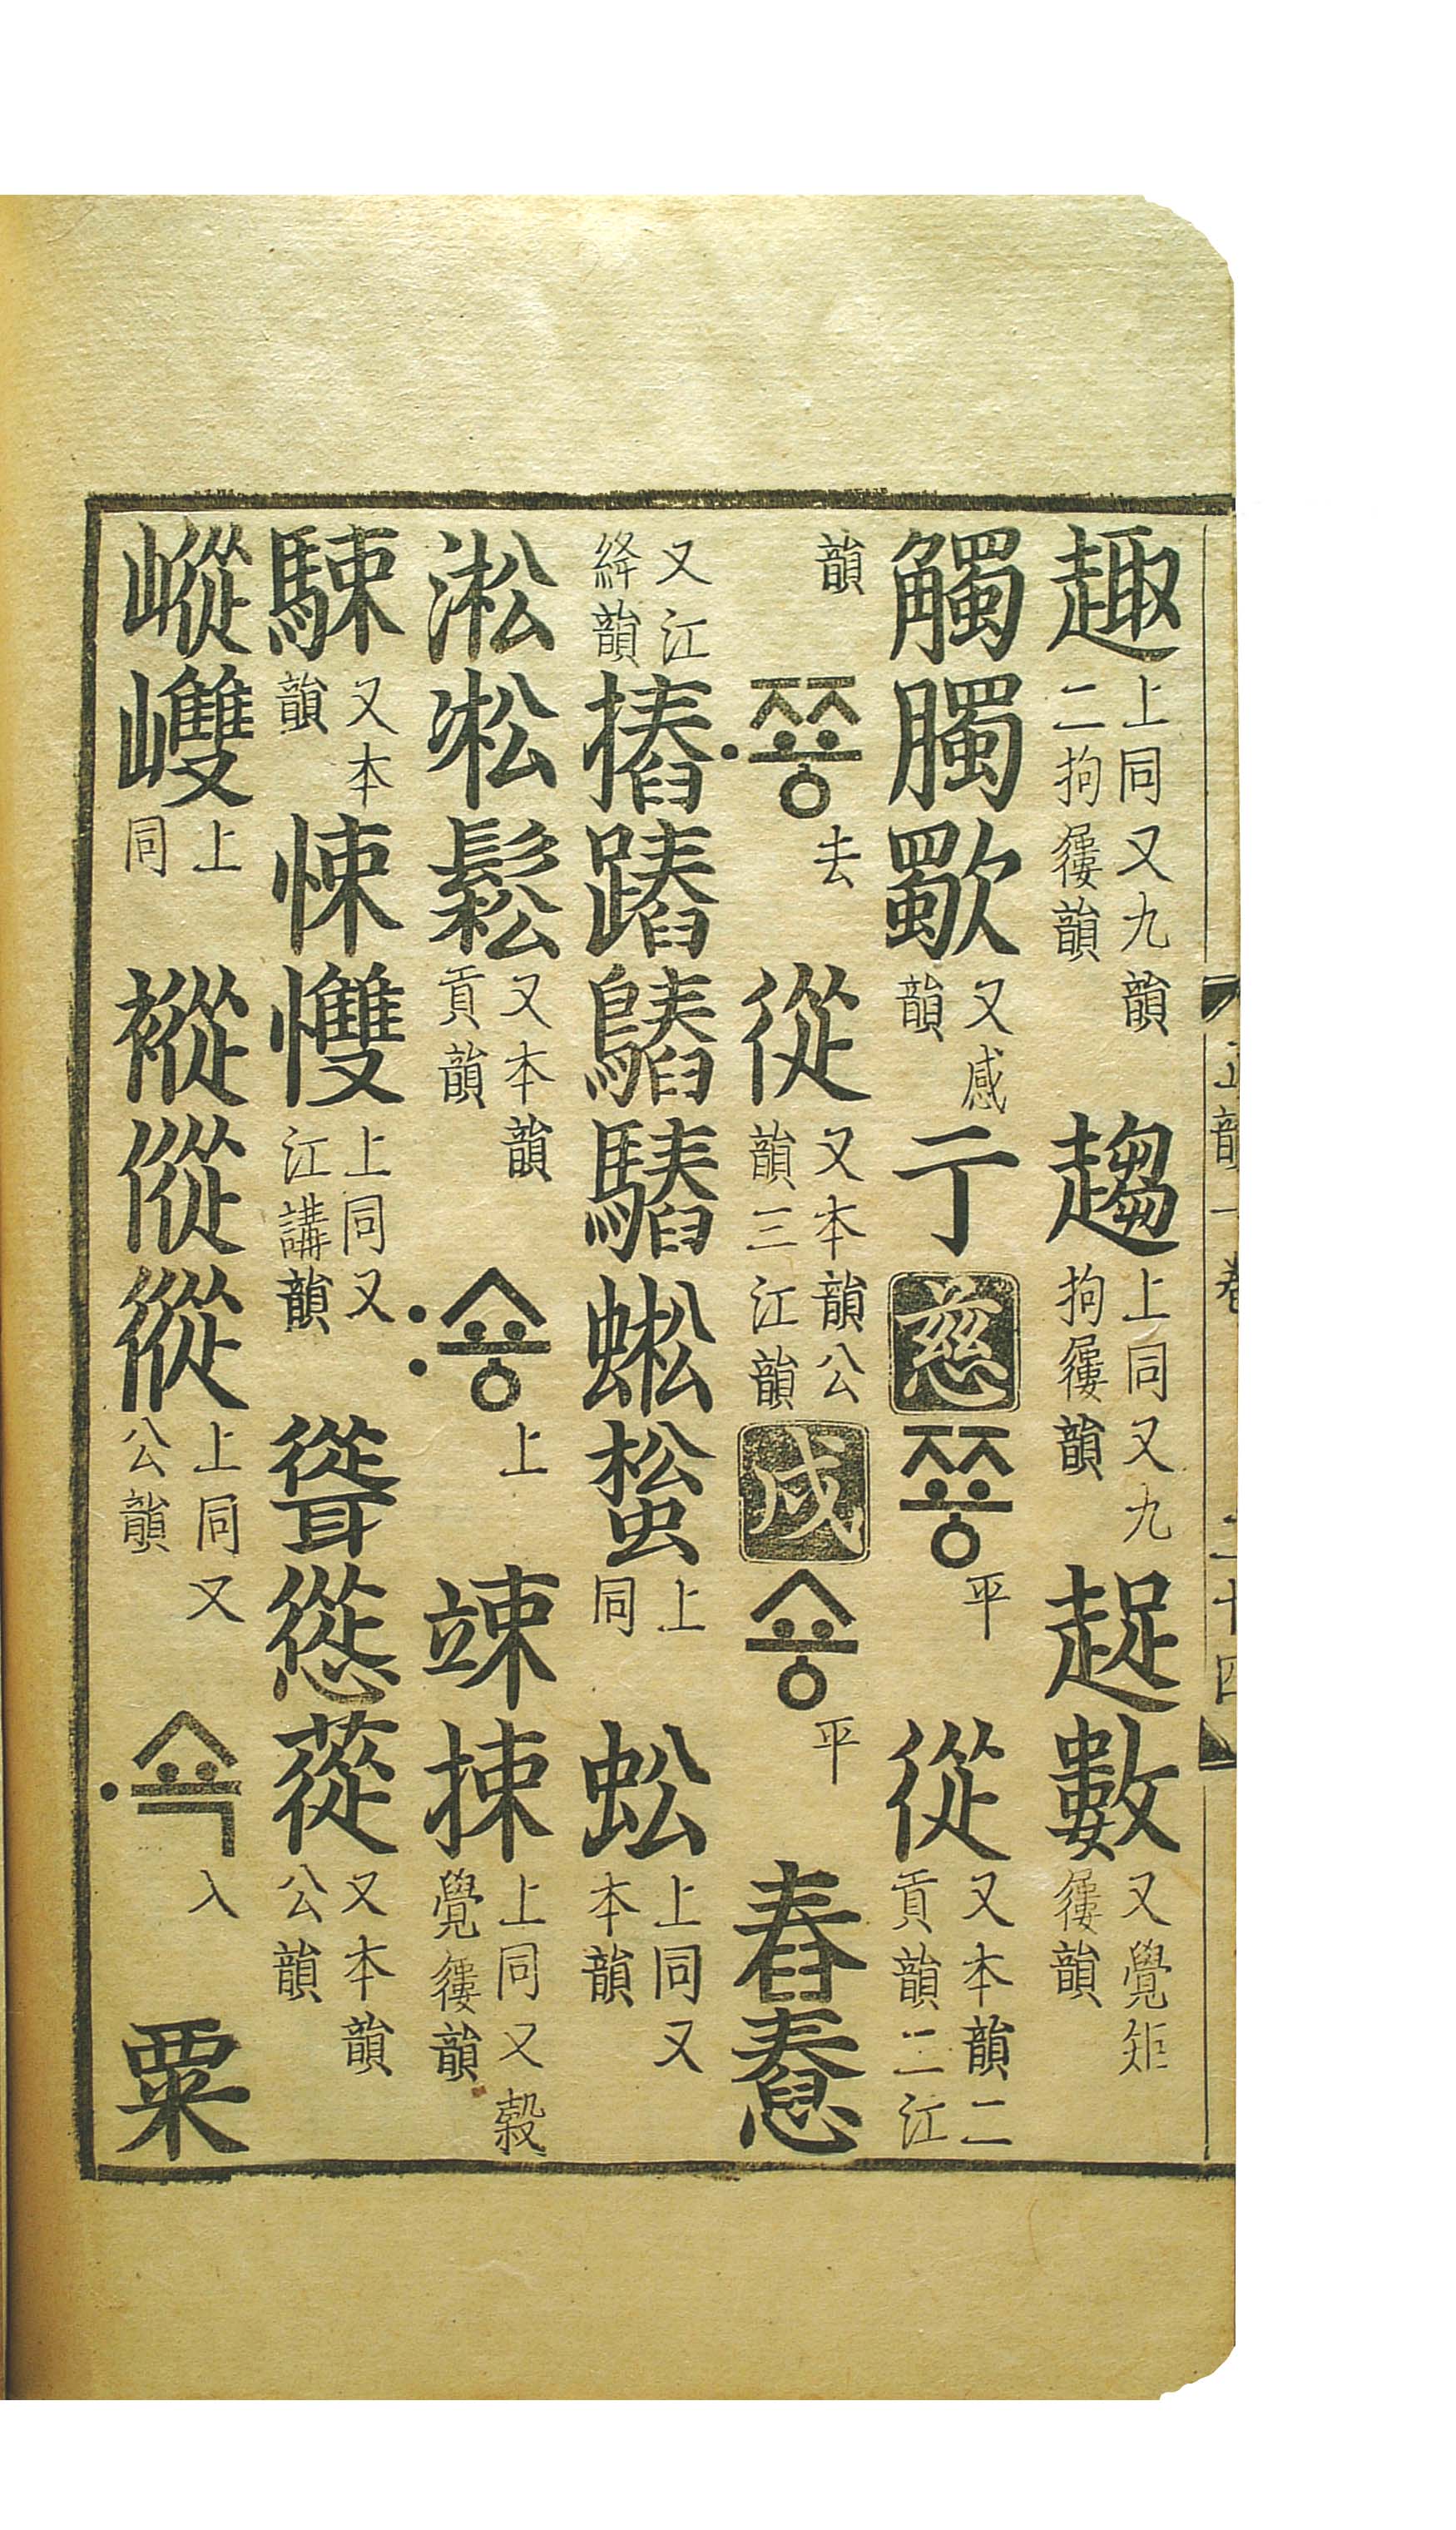 趣上同又九韻二拘屨韻趨上同又九拘屨韻趗數又覺矩屨韻
觸臅歜又感韻亍慈쭁平從又本韻二貢韻二江
韻·쭁去從又本韻公韻三江韻戌숑平舂憃
又江絳韻摏蹖蜙上同蚣上同又本韻
淞凇鬆又本韻貢韻:숑上竦捒上同又穀覺屨韻
駷又本韻悚𢥠上同又江講韻聳慫蓯又本韻公韻
嵷上同傱上同又公韻·쇽入粟
正韻一卷 二十四